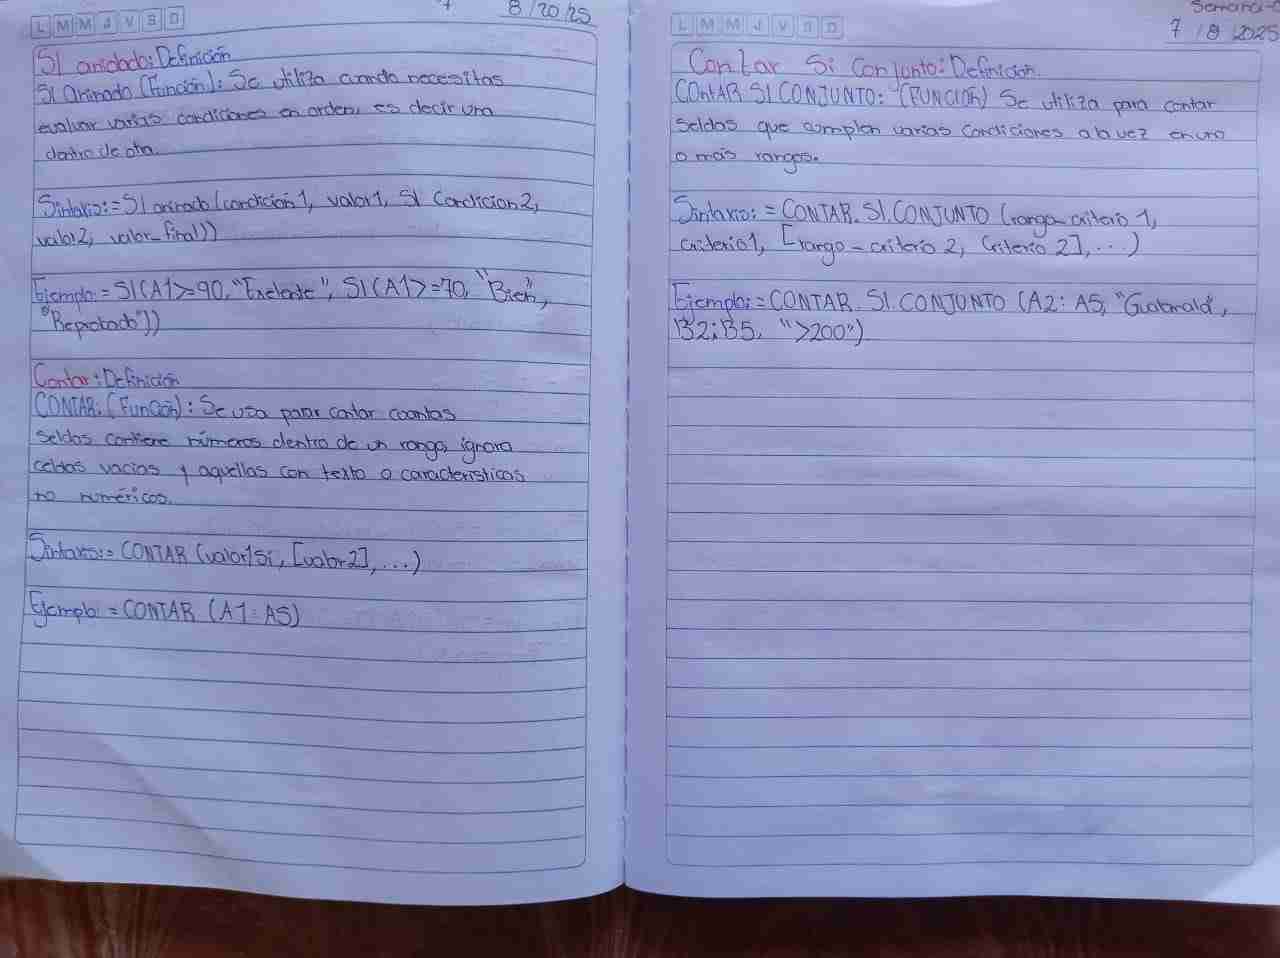 L M M J V S D
8/20/25
SI anidado: Definición
SI Aninado (Función): Se utiliza cuando necesitas
evaluar varias condiciones en orden, es decir una
dentro de otra.
Sintaxis: =SI aninado (condición 1, valor 1, SI Condicion 2,
valor 2, valor_final))
Ejemplo: =SI(A1>=90, "Exelente", SI(A1>=70, "Bien",
"Reprobado"))
Contar: Definición
CONTAR: (Función): Se usa para contar cuantas
seldas contiene números dentro de un rango, ignora
celdas vacias y aquellas con texto o caracteristicas
no numéricos.
Sintaxis: = CONTAR (valor1Si, [valor2], ...)
Ejemplo: = CONTAR (A1: A5)
L M M J V S D
7/8/2025
Contar Si Conjunto: Definición.
CONtAR SI CONJUNTO: (FUNCIÓN) Se utiliza para contar
Seldas que cumplen varias condiciones a la vez en uno
o más rangos.
Sintaxis: = CONTAR. SI. CONJUNTO (rango_criterio 1,
criterio 1, [rango-criterio 2, Criterio 2], ...)
Ejemplo: = CONTAR. SI. CONJUNTO (A2: A5, "Guatemala",
B2:B5, ">200")